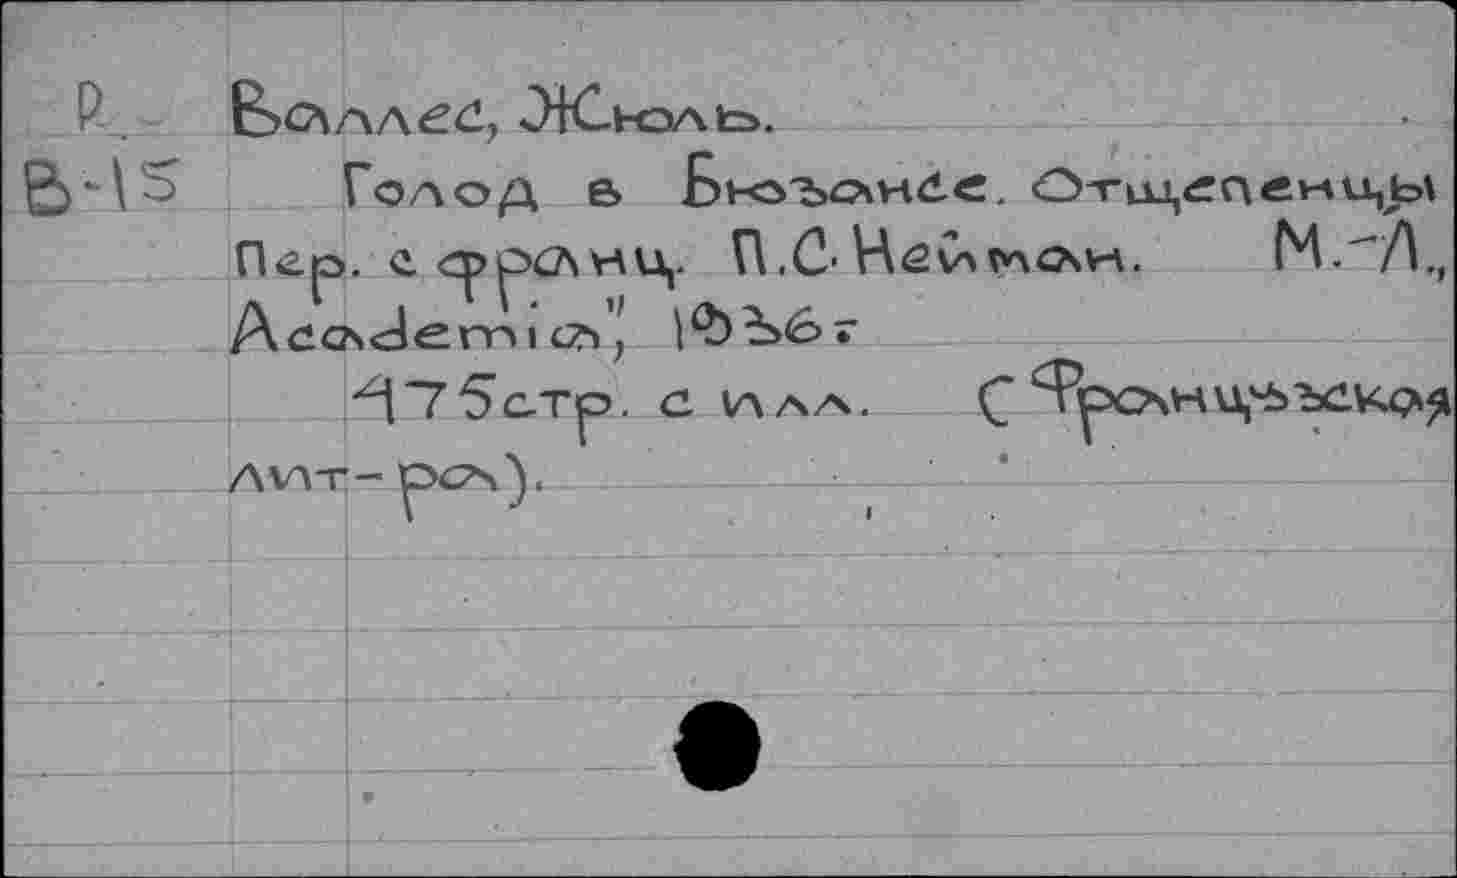 Р.
В-15
Валлес, Жюль.
Голод в Бюзансе. Отщепенцы
Пер. с франц. П.С. Нейман. М.-Л.,
Academia", 1936 г
475 стр. с илл. (Французская
лит-ра).